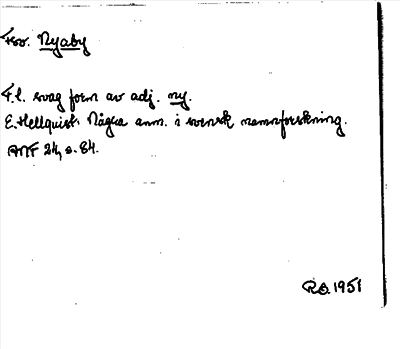 Fsv. Nyaby
F.l. svag form av adj. ny.
E. Hellquist. Några anm. i svensk namnforskning.
ANF 24, s. 84.
R.O. 1951